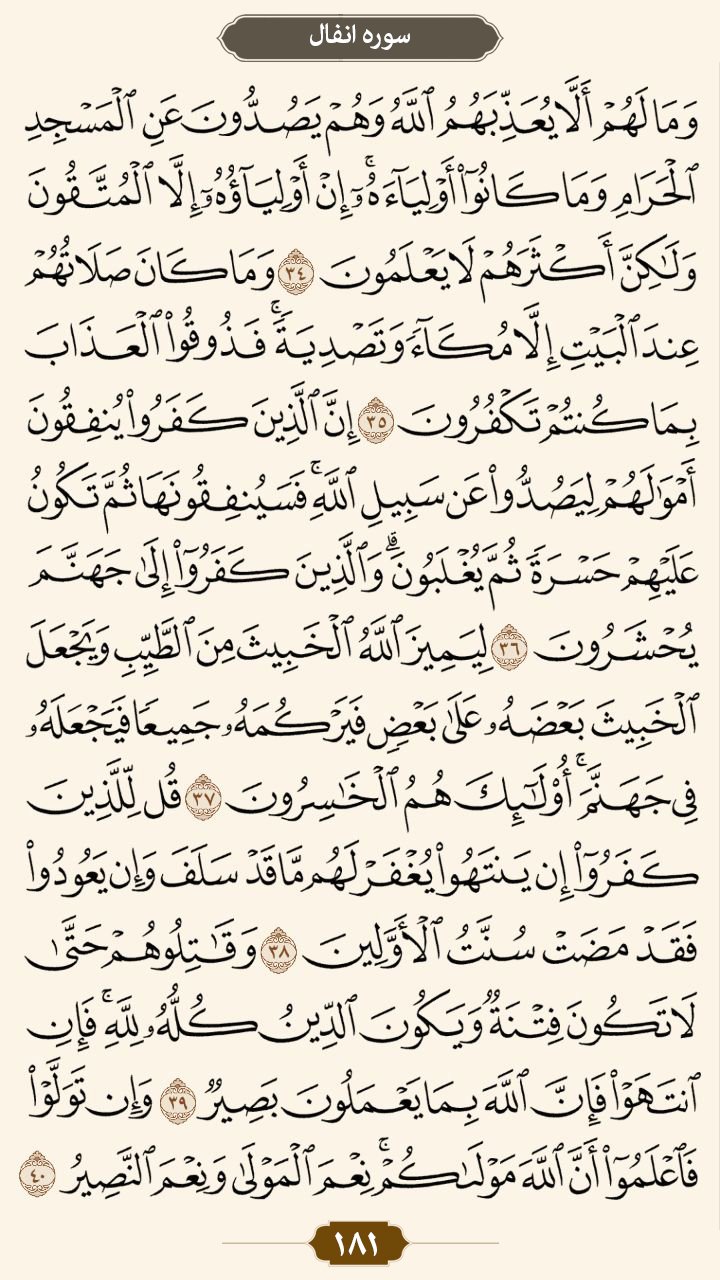 سوره انفال
وَمَا لَهُمْ أَلَّا يُعَذِّبَهُمُ ٱللَّهُ وَهُمْ يَصُدُّونَ عَنِ ٱلْمَسْجِدِ
ٱلْحَرَامِ وَمَا كَانُوٓا۟ أَوْلِيَآءَهُۥٓ ۚ إِنْ أَوْلِيَآؤُهُۥٓ إِلَّا ٱلْمُتَّقُونَ
وَلَٰكِنَّ أَكْثَرَهُمْ لَا يَعْلَمُونَ ٣٤ وَمَا كَانَ صَلَاتُهُمْ
عِندَ ٱلْبَيْتِ إِلَّا مُكَآءً وَتَصْدِيَةً ۚ فَذُوقُوا۟ ٱلْعَذَابَ
بِمَا كُنتُمْ تَكْفُرُونَ ٣٥ إِنَّ ٱلَّذِينَ كَفَرُوا۟ يُنفِقُونَ
أَمْوَٰلَهُمْ لِيَصُدُّوا۟ عَن سَبِيلِ ٱللَّهِ ۚ فَسَيُنفِقُونَهَا ثُمَّ تَكُونُ
عَلَيْهِمْ حَسْرَةً ثُمَّ يُغْلَبُونَ ۗ وَٱلَّذِينَ كَفَرُوٓا۟ إِلَىٰ جَهَنَّمَ
يُحْشَرُونَ ٣٦ لِيَمِيزَ ٱللَّهُ ٱلْخَبِيثَ مِنَ ٱلطَّيِّبِ وَيَجْعَلَ
ٱلْخَبِيثَ بَعْضَهُۥ عَلَىٰ بَعْضٍ فَيَرْكُمَهُۥ جَمِيعًا فَيَجْعَلَهُۥ
فِى جَهَنَّمَ ۚ أُو۟لَٰٓئِكَ هُمُ ٱلْخَٰسِرُونَ ٣٧ قُل لِّلَّذِينَ
كَفَرُوٓا۟ إِن يَنتَهُوا۟ يُغْفَرْ لَهُم مَّا قَدْ سَلَفَ وَإِن يَعُودُوا۟
فَقَدْ مَضَتْ سُنَّتُ ٱلْأَوَّلِينَ ٣٨ وَقَٰتِلُوهُمْ حَتَّىٰ
لَا تَكُونَ فِتْنَةٌ وَيَكُونَ ٱلدِّينُ كُلُّهُۥ لِلَّهِ ۚ فَإِنِ
ٱنتَهَوْا۟ فَإِنَّ ٱللَّهَ بِمَا يَعْمَلُونَ بَصِيرٌ ٣٩ وَإِن تَوَلَّوْا۟
فَٱعْلَمُوٓا۟ أَنَّ ٱللَّهَ مَوْلَىٰكُمْ ۚ نِعْمَ ٱلْمَوْلَىٰ وَنِعْمَ ٱلنَّصِيرُ ٤٠
١٨١